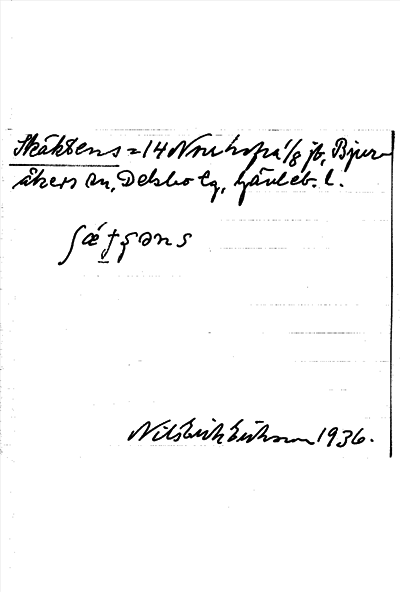 Skäktens = 14 Norrhofrå 1/8 jb, Bjur-
åkers sn, Delsbo tg, Gävleb. l.
ʃæ̀ t ʂəns
Nils Erik Eriksson 1936.